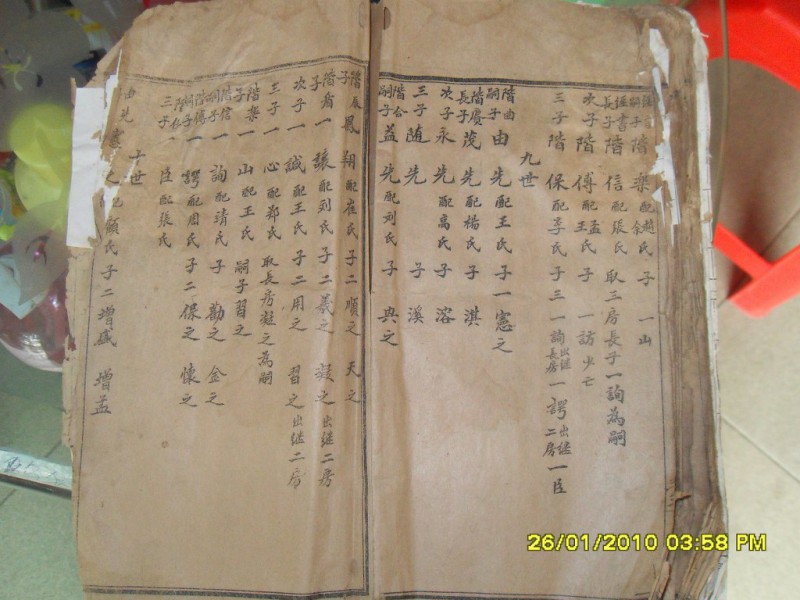 嗣子階樂配趙氏余氏 子一山
經書長子階信配張氏 取三房長子一詢為嗣
次子階傅配孟氏王氏 子一訪少亡
三子階保配李氏 子三一詢出继長房一謣出继二房一臣
九世
階曲嗣子由先配王氏 子一憲之
階賡長子茂先配楊氏 子淇
次子永先配高氏 子溶
三子随先 子溪
階合嗣子益先配刘氏 子典之
子鳳翔配崔氏 子二順之 天之
子一讓配刘氏 子二羲之 凝之出继二房
次子一誠配王氏 子二用之 習之出继二房
三子一心配郑氏 取長房凝之為嗣
階樂子一山配王氏 嗣子習之
階信嗣子一詢配靖氏 子勸之 金之
階傅嗣子一謣配周氏 子二保之 懷之
階保三子一臣配張氏
十世
由先 憲之配顏氏 子二增盛 增孟
26/01/2010 03:58 PM